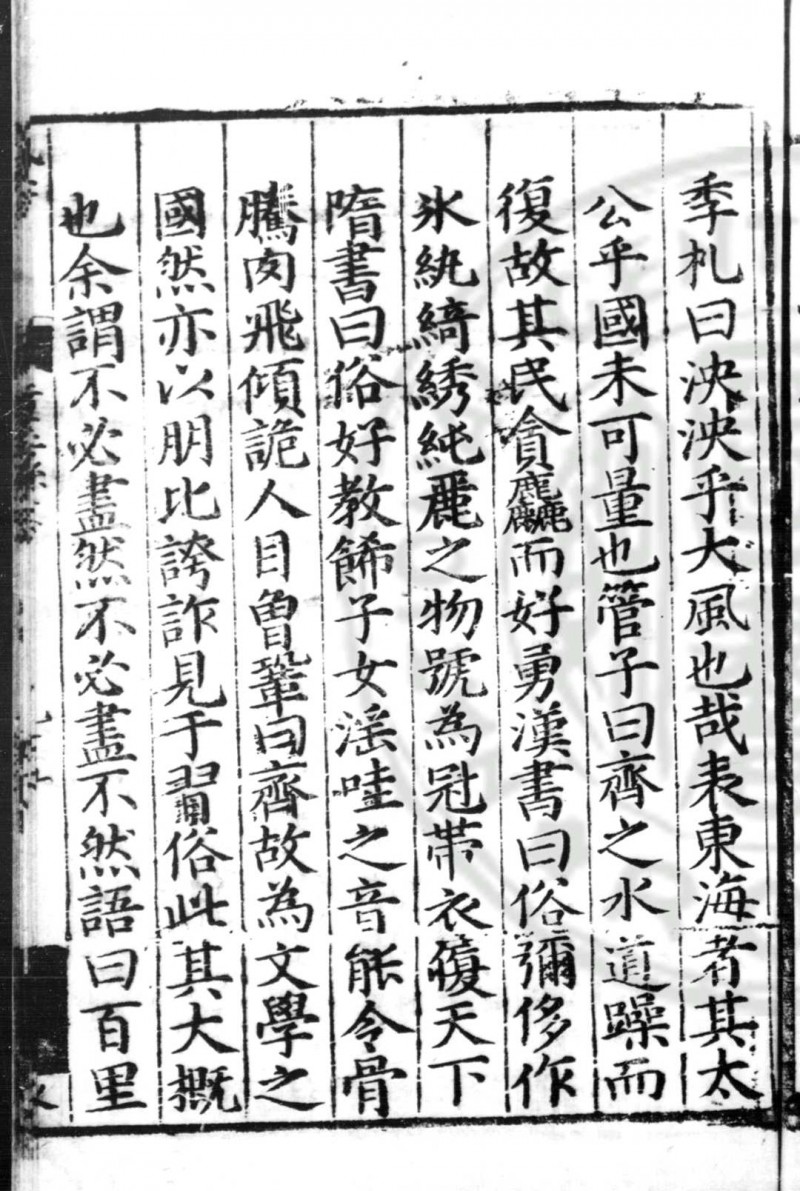 季札曰泱泱乎大風也哉表東海者其太
公乎國未可量也管子曰齊之水遒躁而
復故其民貪麤而好勇漢書曰俗彌侈作
氷紈綺綉純麗之物號為冠帯衣履天下
隋書曰俗好教餙子女滛哇之音能令骨
騰肉飛傾詭人目曾鞏曰齊故為文學之
國然亦以朋比誇詐見于習俗此其大概
也余謂不必盡然不必盡不然語曰百里